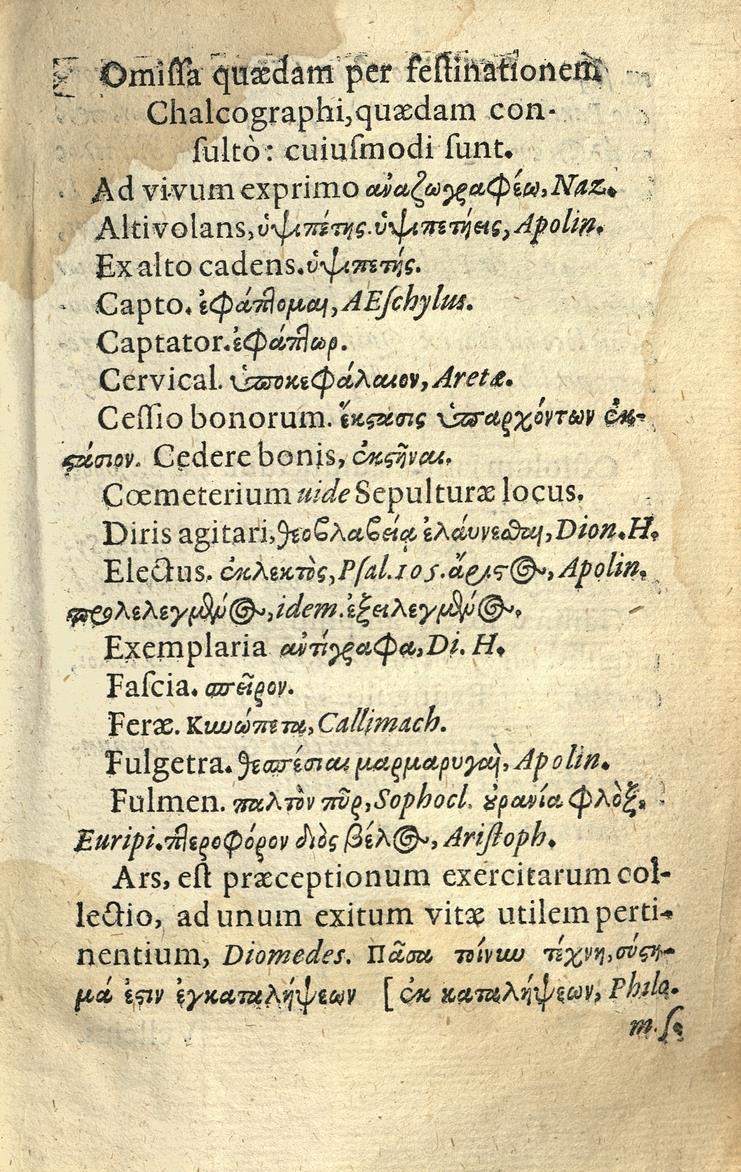 Omiſſa quædam per feſtinationem
Chalcographi, quædam con-
ſultò: cuiuſmodi ſunt.
Ad vivum exprimo ἀναζωγραφέω, Naz.
Altivolans, ὑψιπέτης. ὑψιπετήεις, Apolin.
Ex alto cadens. ὑψιπετής.
Capto. ἐφάπτομαι, AEſchylus.
Captator. ἐφάπτωρ.
Cervical. ὑποκεφάλαιον, Aretæ.
Ceſſio bonorum. ἔκστασις ὑπαρχόντων ἐκ-
στάσιον. Cedere bonis, ἐκστῆναι.
Cœmeterium uide Sepulturæ locus.
Diris agitari, θεοβλαβείᾳ ἐλάυνεσθαι, Dion. H.
Electus. ἐκλεκτὸς, Pſal. 105. ἄριστος, Apolin.
προλελεγμένος, idem. ἐξειλεγμένος.
Exemplaria ἀντίγραφα, Di. H.
Faſcia. σπεῖρον.
Feræ. Κινώπετα, Callimach.
Fulgetra. θεσπέσιαι μαρμαρυγαὶ, Apolin.
Fulmen. παλτὸν πῦρ, Sophocl. οὐρανία φλὸξ,
Euripi. πτεροφόρον διὸς βέλος, Ariſtoph.
Ars, eſt præceptionum exercitarum col-
lectio, ad unum exitum vitæ utilem perti-
nentium, Diomedes. Πᾶσα τοίνυν τέχνη, σύστη-
μά ἐστιν ἐγκαταλήψεων [ἐκ καταλήψεων, Philo.
m. ſ.